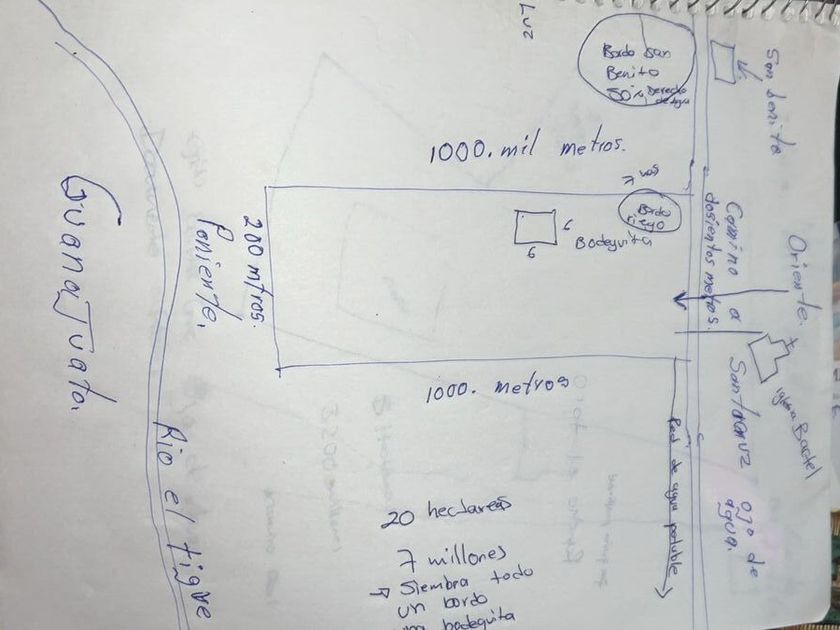 Luz
Bordo San
Benito
50% Derecho
de agua
San benito
1000. mil metros.
Bordo
riego
6
Bodeguita
6
Camino a
dosientos metros.
Oriente.
iglesia
Santacruz
ojo de
agua.
200 mtros.
Poniente.
1000. metros
Red de agua potable
Guanajuato.
Rio el tigre
20 hectareas
7 millones
Siembra todo
un bordo
bodeguita